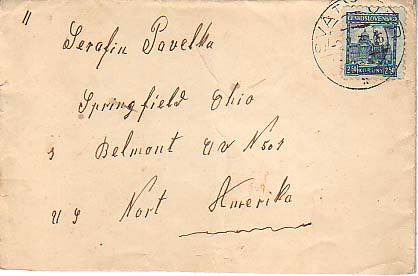 "
Serafin Pavelka
Springfield Ohio
s Belmont av N 501
u s Nort Amerika
ČESKOSLOVENSKO
2.50 KORUNY 2.50